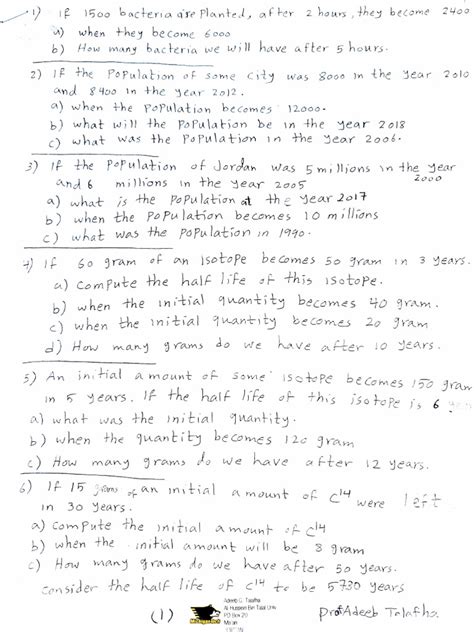 1) If 1500 bacteria are Planted, after 2 hours, they become 2400
a) when they become 6000
b) How many bacteria we will have after 5 hours.
2) If the Population of some city was 8000 in the year 2010
and 8400 in the year 2012.
a) when the population becomes 12000.
b) what will the Population be in the year 2018
c) what was the Population in the year 2006.
3) If the Population of Jordan was 5 millions in the year 2000
and 6 millions in the year 2005
a) what is the population at the year 2017
b) when the population becomes 10 millions
c) what was the population in 1990.
4) If 60 gram of an Isotope becomes 50 gram in 3 years.
a) compute the half life of this isotope.
b) when the initial quantity becomes 40 gram.
c) when the initial quantity becomes 20 gram
d) How many grams do we have after 10 years.
5) An initial amount of some isotope becomes 150 gram
in 5 years. If the half life of this isotope is 6
a) what was the initial quantity.
b) when the quantity becomes 120 gram
c) How many grams do we have after 12 years.
6) If 15 grams of an initial amount of C14 were left
in 30 years.
a) compute the initial amount of C14
b) when the initial amount will be 8 gram
c) How many grams do we have after 50 years.
consider the half life of C14 to be 5730 years
(1)
Adeeb G. Talafha
Al Hussein Bin Talal Univ.
PO Box 20
Ma'an
Prof Adeeb Talafha